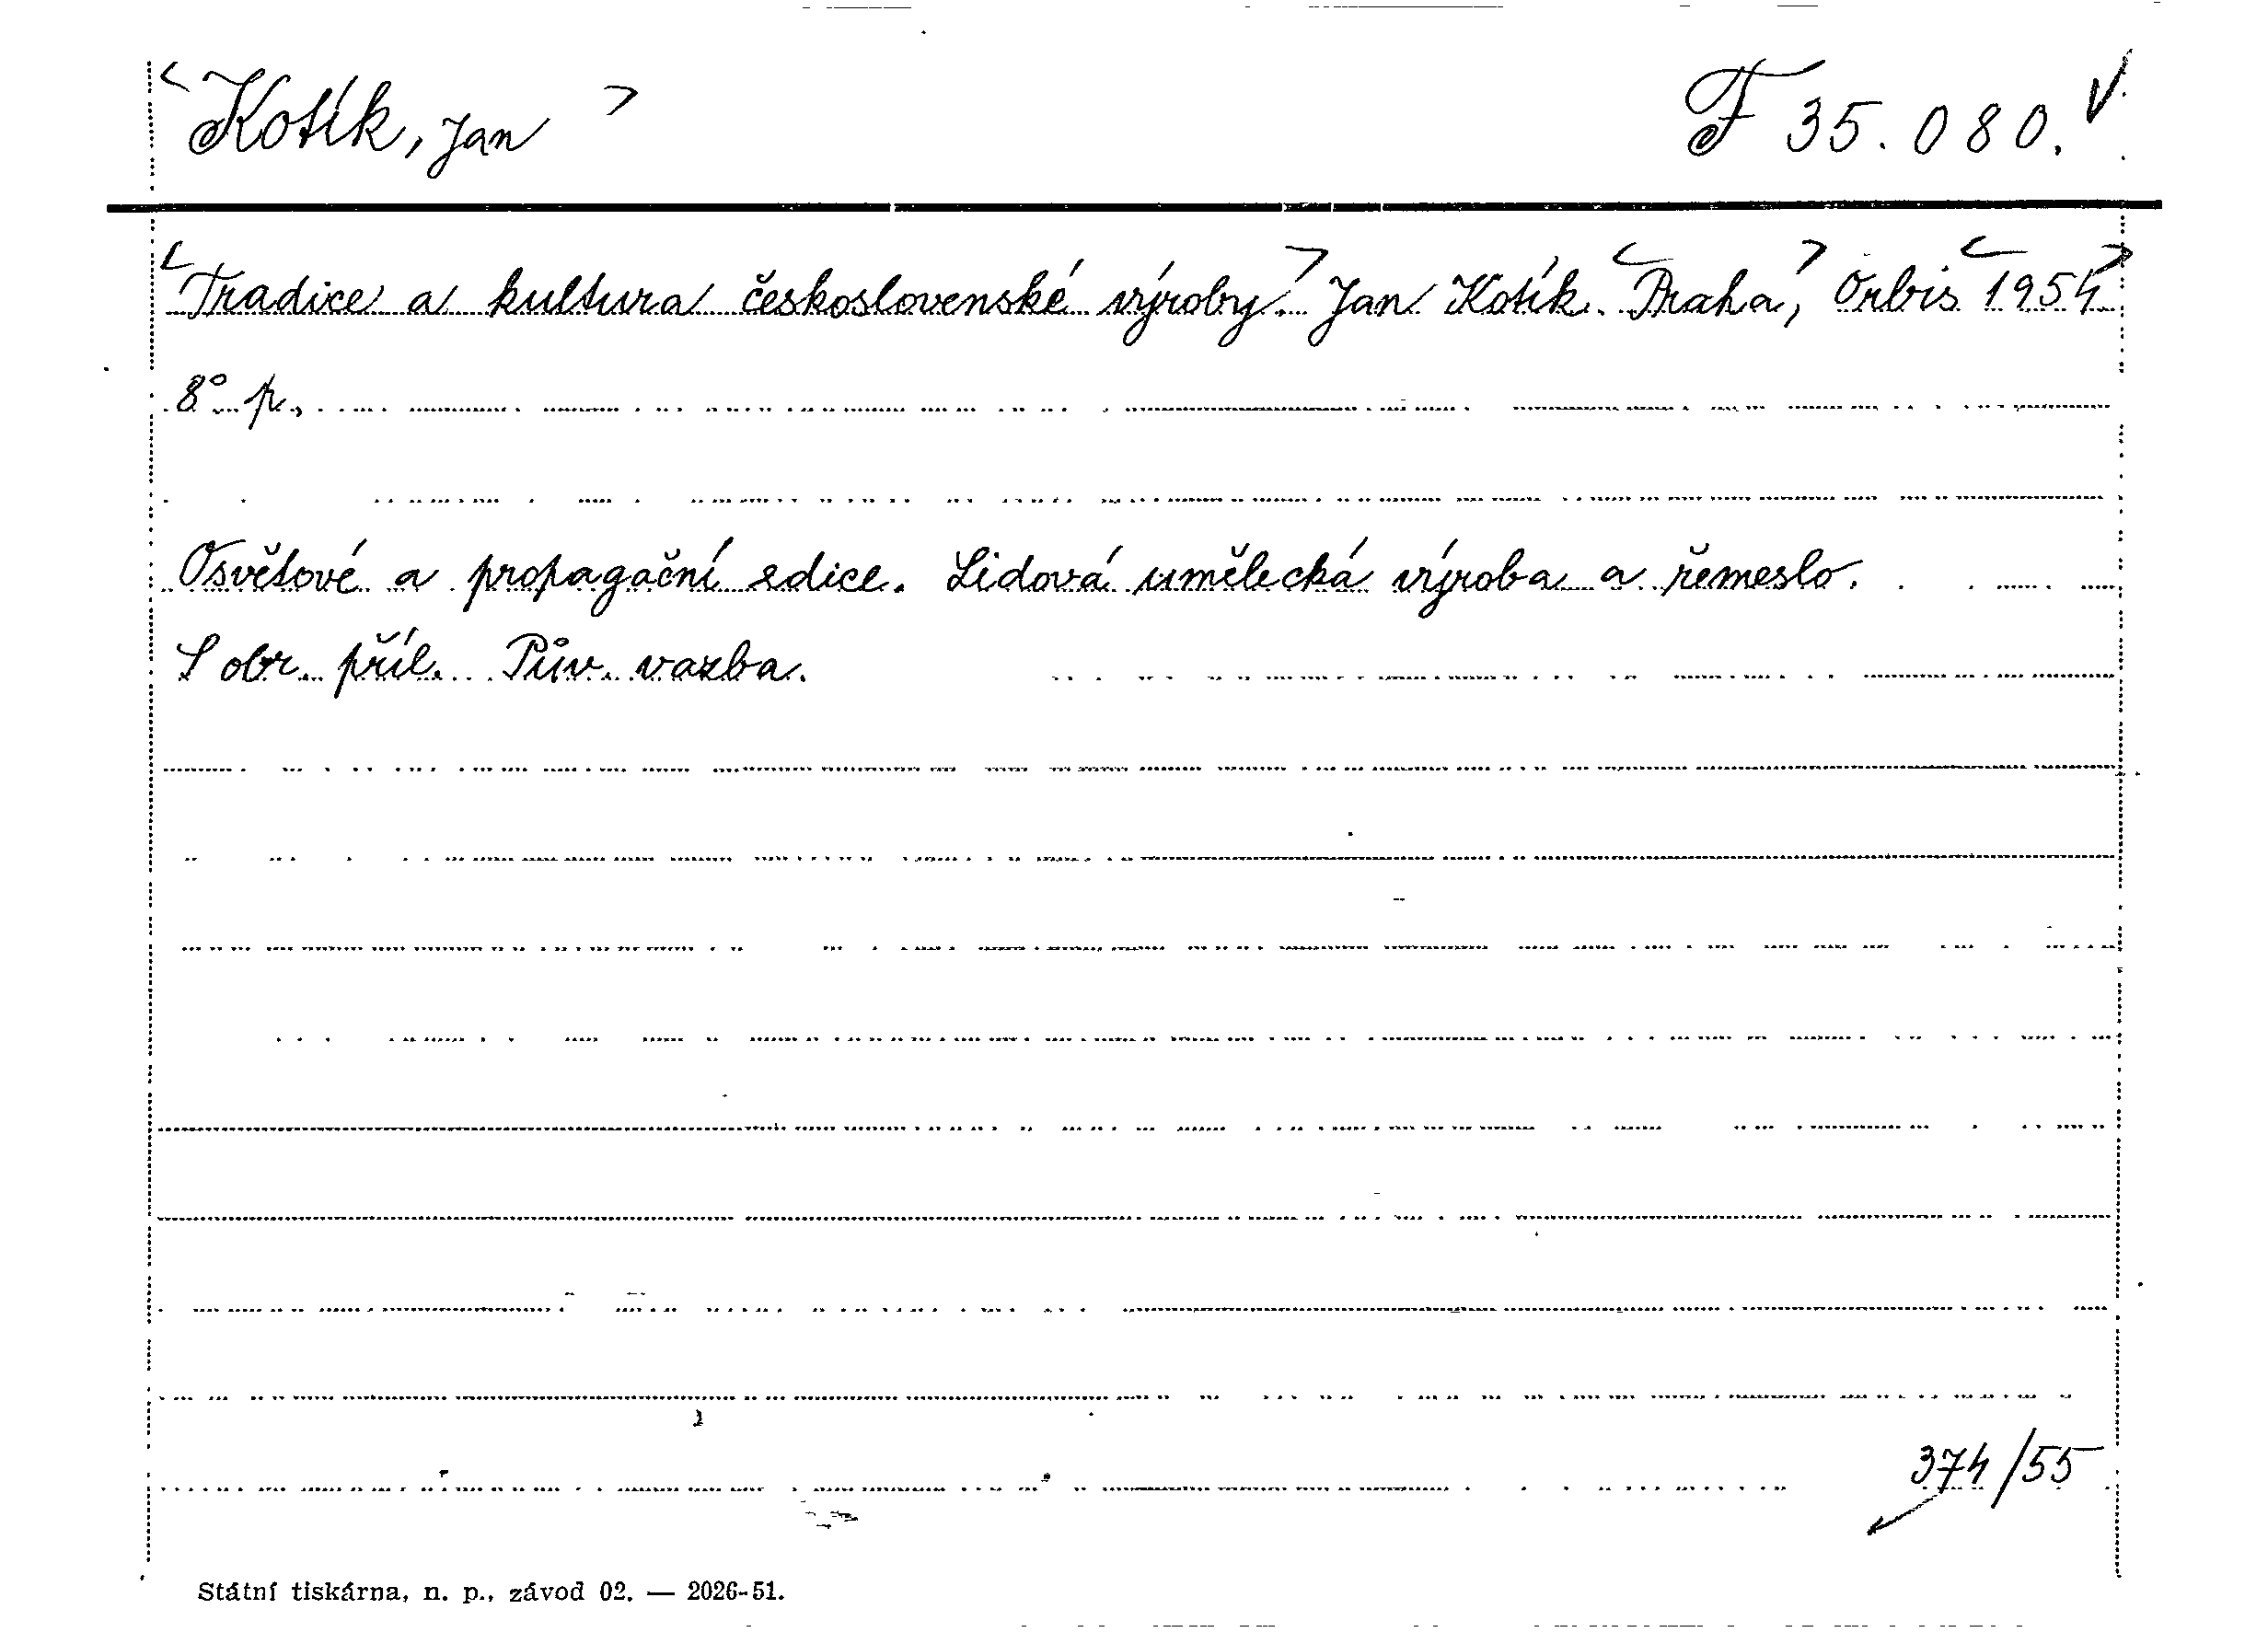 Kotík, Jan F 35.080.
Tradice a kultura československé výroby. Jan Kotík. Praha, Orbis 1954
8° p.
Osvětové a propagační edice. Lidová umělecká výroba a řemeslo.
S obr. příl. Pův. vazba.
374/55
Státní tiskárna, n. p., závod 02. — 2026-51.